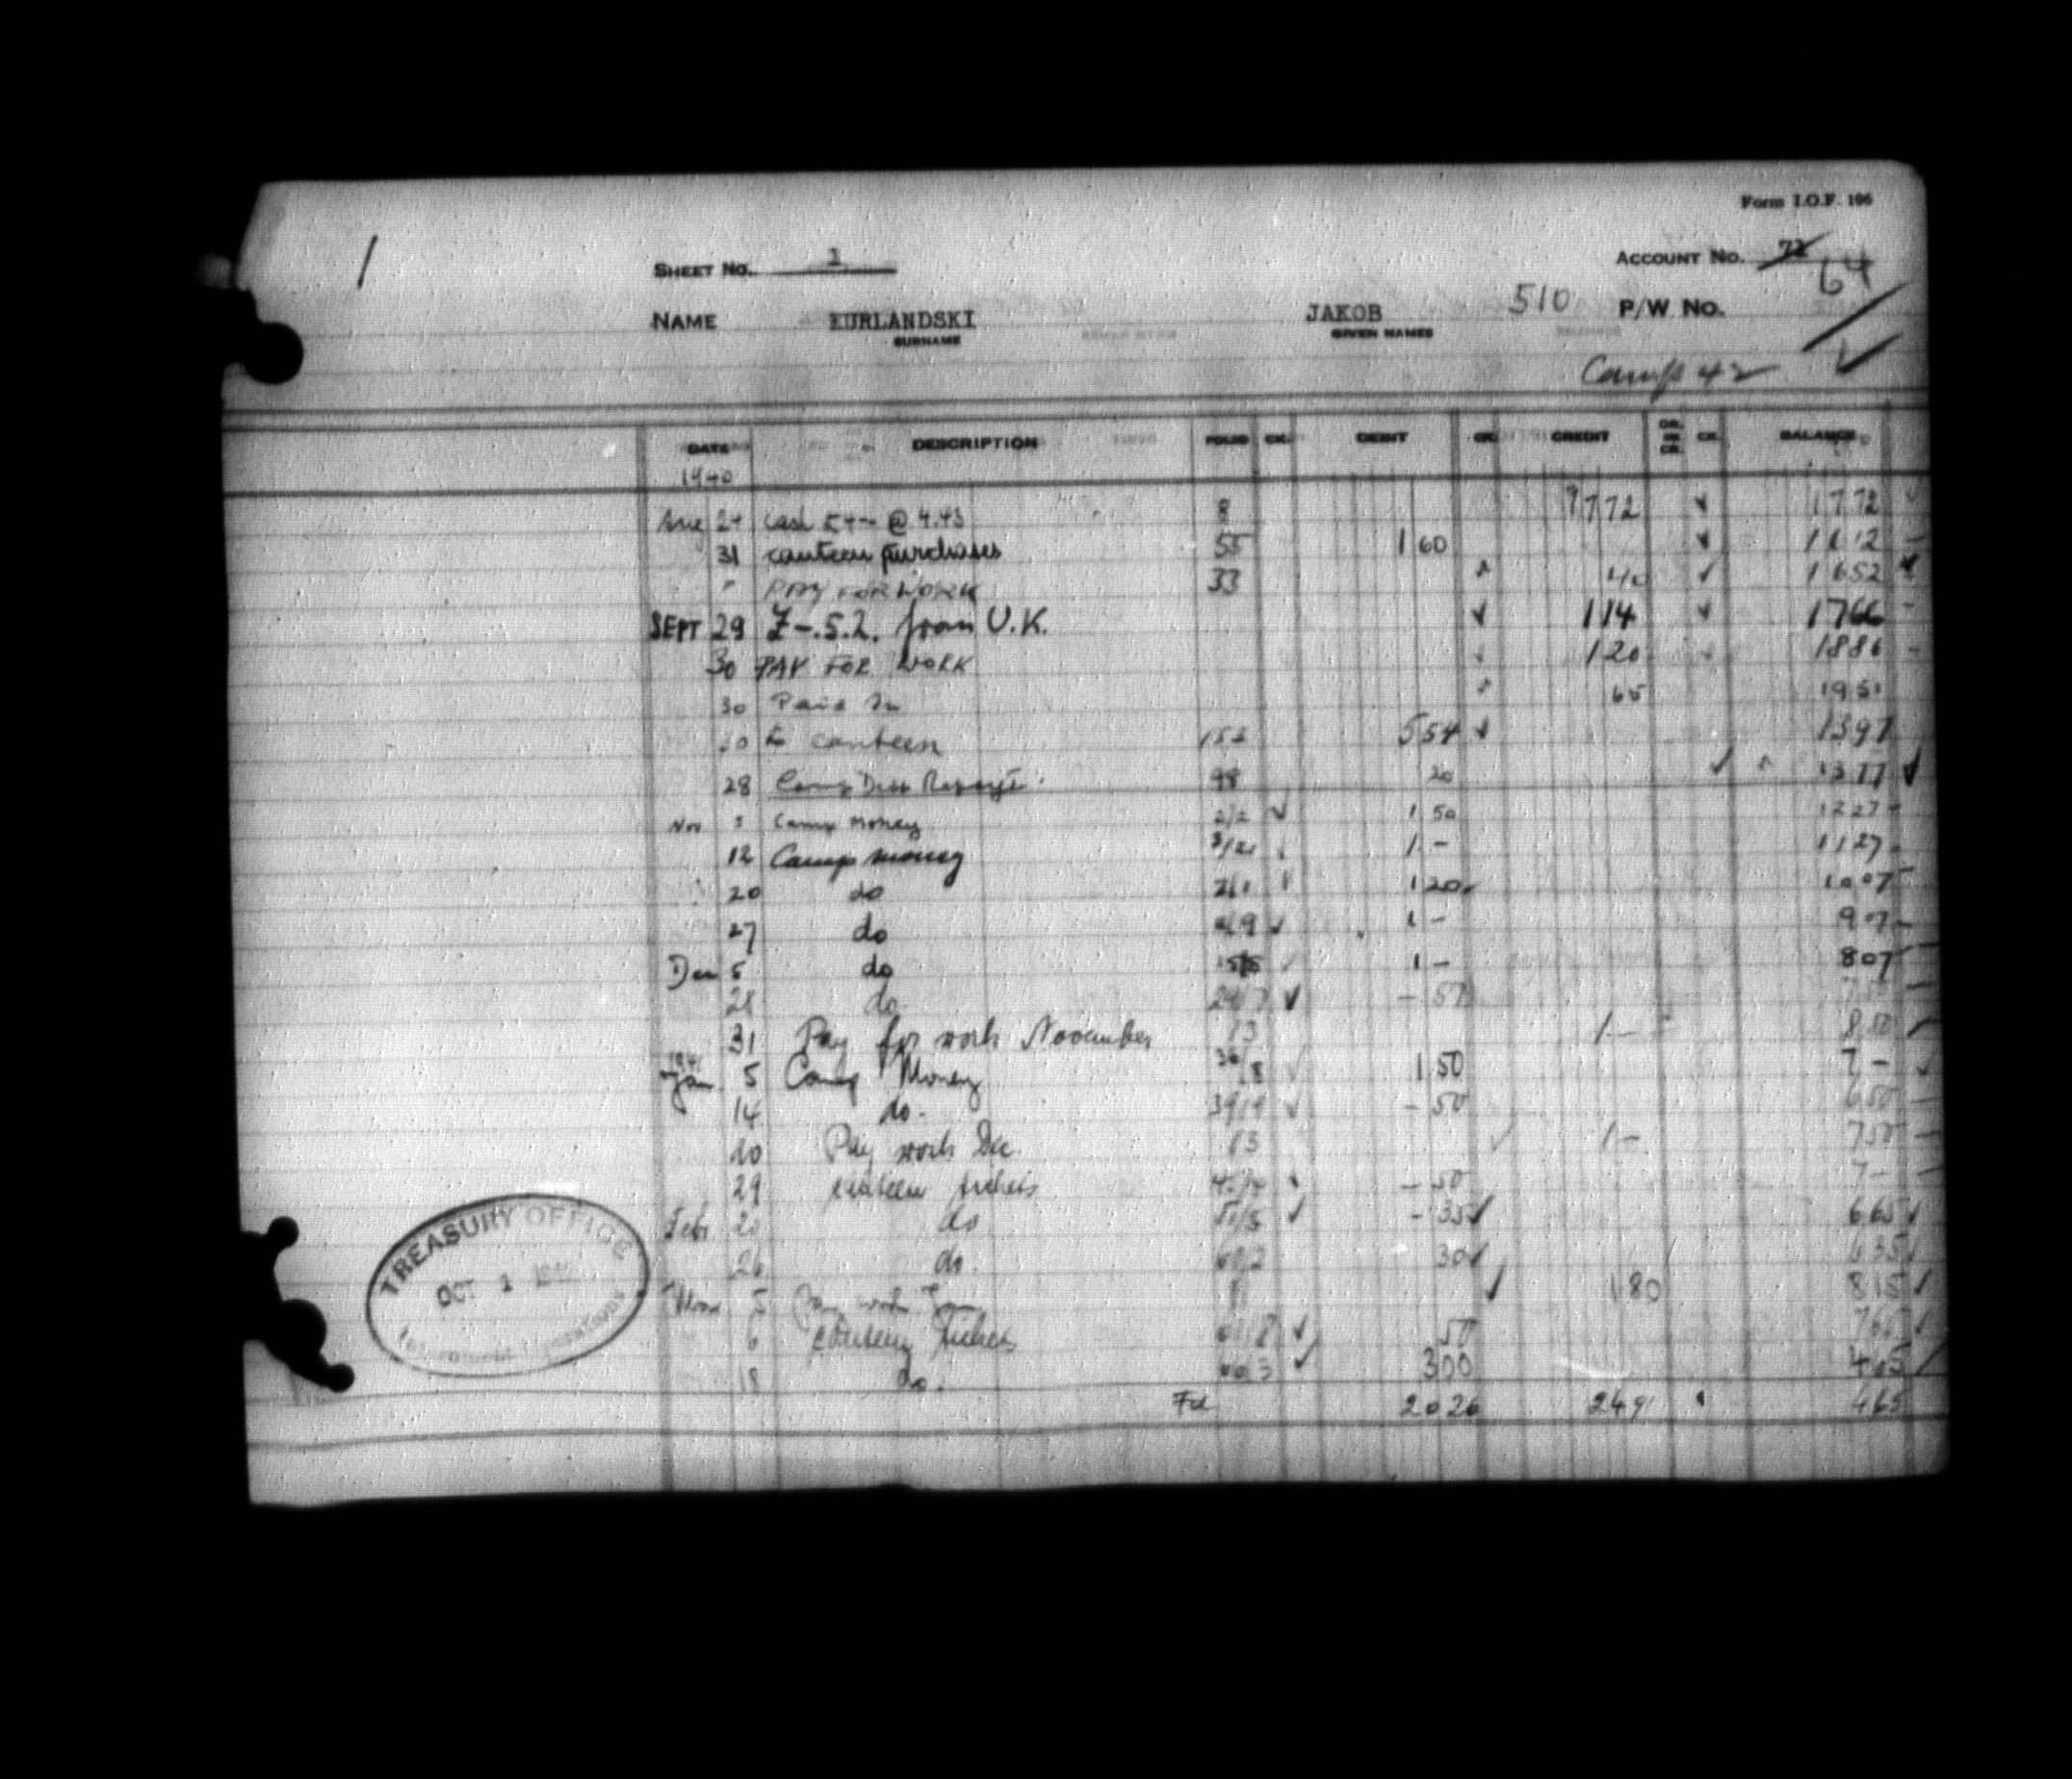 Form I.O.F. 106
/
SHEET No. 1
ACCOUNT No. 72 64
NAME KURLANDSKI JAKOB 510 P/W No.
SURNAME GIVEN NAMES
Camp 42
DATE DESCRIPTION FOLIO CK. DEBIT CK. CREDIT DR. OR CR. CK. BALANCE
1940
Aug 24 Cash £4-- @ 4.43 8 1772 1772
31 canteen purchases 55 1 60 1612
" PAY FOR WORK 33 40 1652
SEPT 29 £-.5.2. from U.K. 114 1766
30 PAY FOR WORK 120 1886
30 Paid In 65 1951
30 to canteen 554 1397
28 98 20 1377
Nov Camp Money 2/2 1 50 1227
12 Camp money 3/21 1 - 1127
20 do 1 20 1007
27 do 1 - 907
Dec 5 do 1 - 807
28 do. - 57 750
31 Pay for work November 13 1 - 850
1941
Jan 5 Camp Money 36/8 1 50 7 -
14 do. 39/9 - 50 650
Pay work Dec. 13 1 - 750
29 canteen tickets - 50 7 -
Feb 20 do 50/5 - 35 665
26 do. 30 635
Mar 5 Pay work Jan 1 80 815
6 canteen tickets 50 765
18 do. 300 465
Fd 2026 2491 465
TREASURY OFFICE
OCT 1
Internment Operations